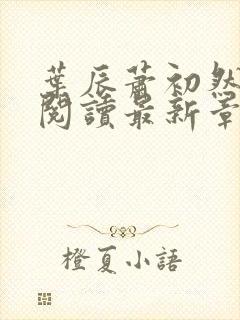 葉辰蕭初然
閱讀最新章
橙夏小語